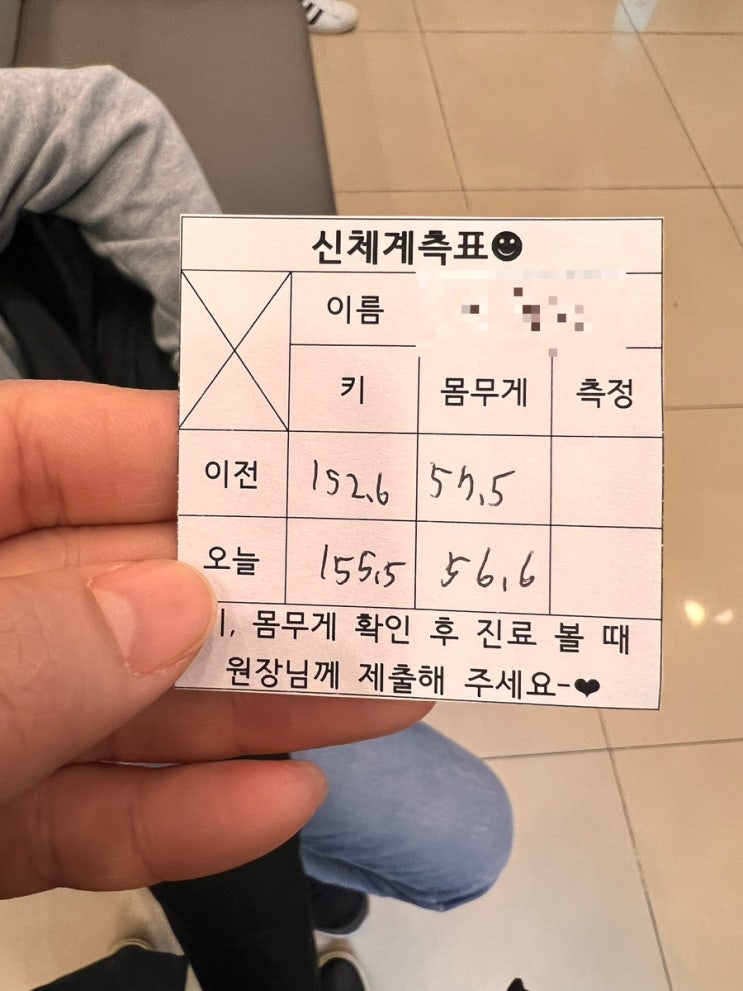 신체계측표☻
이름
키 몸무게 측정
이전 152.6 57.5
오늘 155.5 56.6
, 몸무게 확인 후 진료 볼 때
원장님께 제출해 주세요-❤